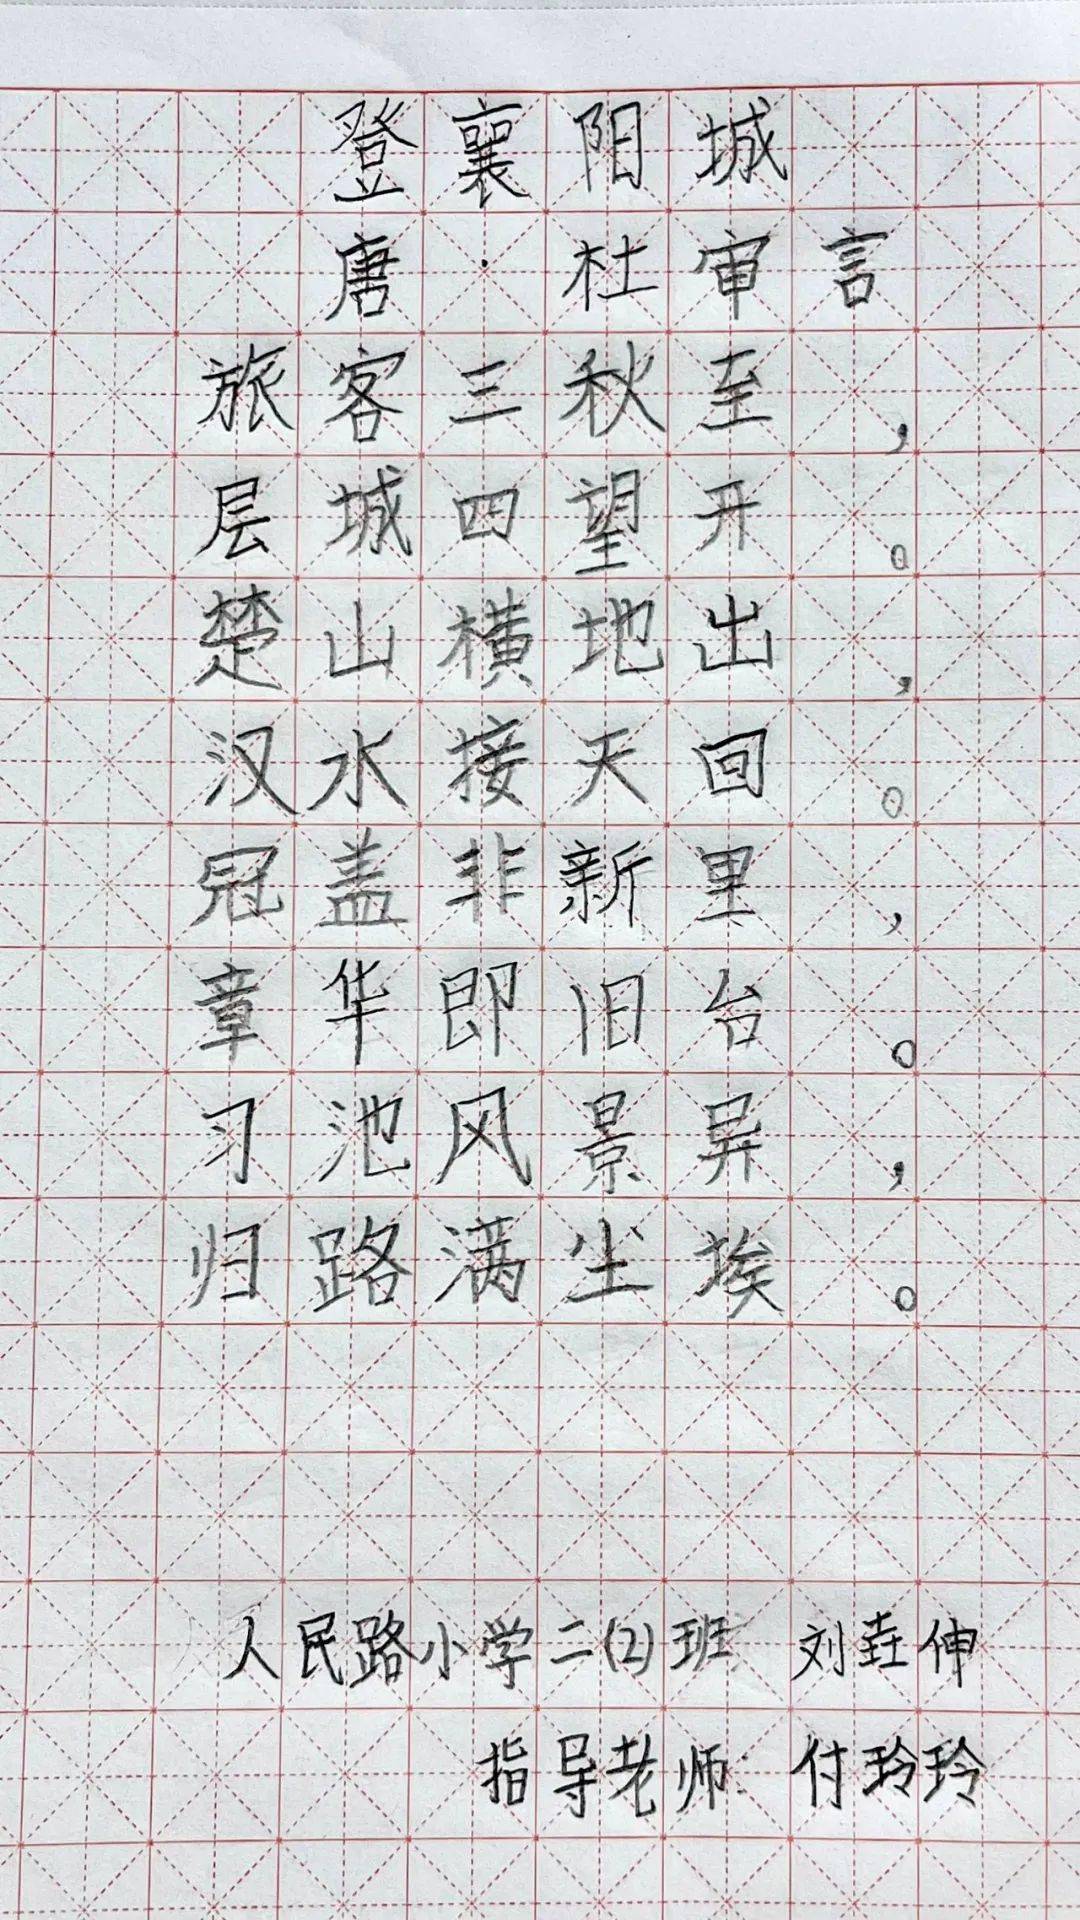 登襄阳城
唐·杜审言
旅客三秋至，
层城四望开。
楚山横地出，
汉水接天回。
冠盖非新里，
章华即旧台。
习池风景异，
归路满尘埃。
人民路小学二(2)班 刘垚伸
指导老师：付玲玲